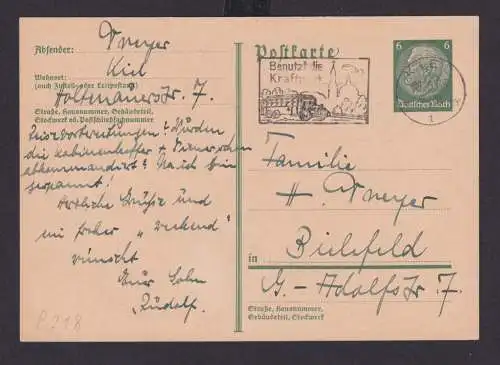 Absender:
Meyer
Kiel
Wohnort:
(auch Zustell- oder Leitpostamt)
Holtenauerstr. 7.
Straße, Hausnummer, Gebäudeteil,
Stockwerk od. Postschließfachnummer
Reisevorbereitungen? Würden
die Kabinenkoffer +
abkommandiert? Na ich bin
gespannt!
Herzliche Grüße und
ein frohes „Weekend“
wünscht
Euer Sohn
Rudolf.
P 218
Postkarte
Benutzt die
Kraftpost
6 6
Deutsches Reich
1
Familie
H. Meyer
in Bielefeld
G.-Adolfstr. 7.
Straße, Hausnummer,
Gebäudeteil, Stockwerk